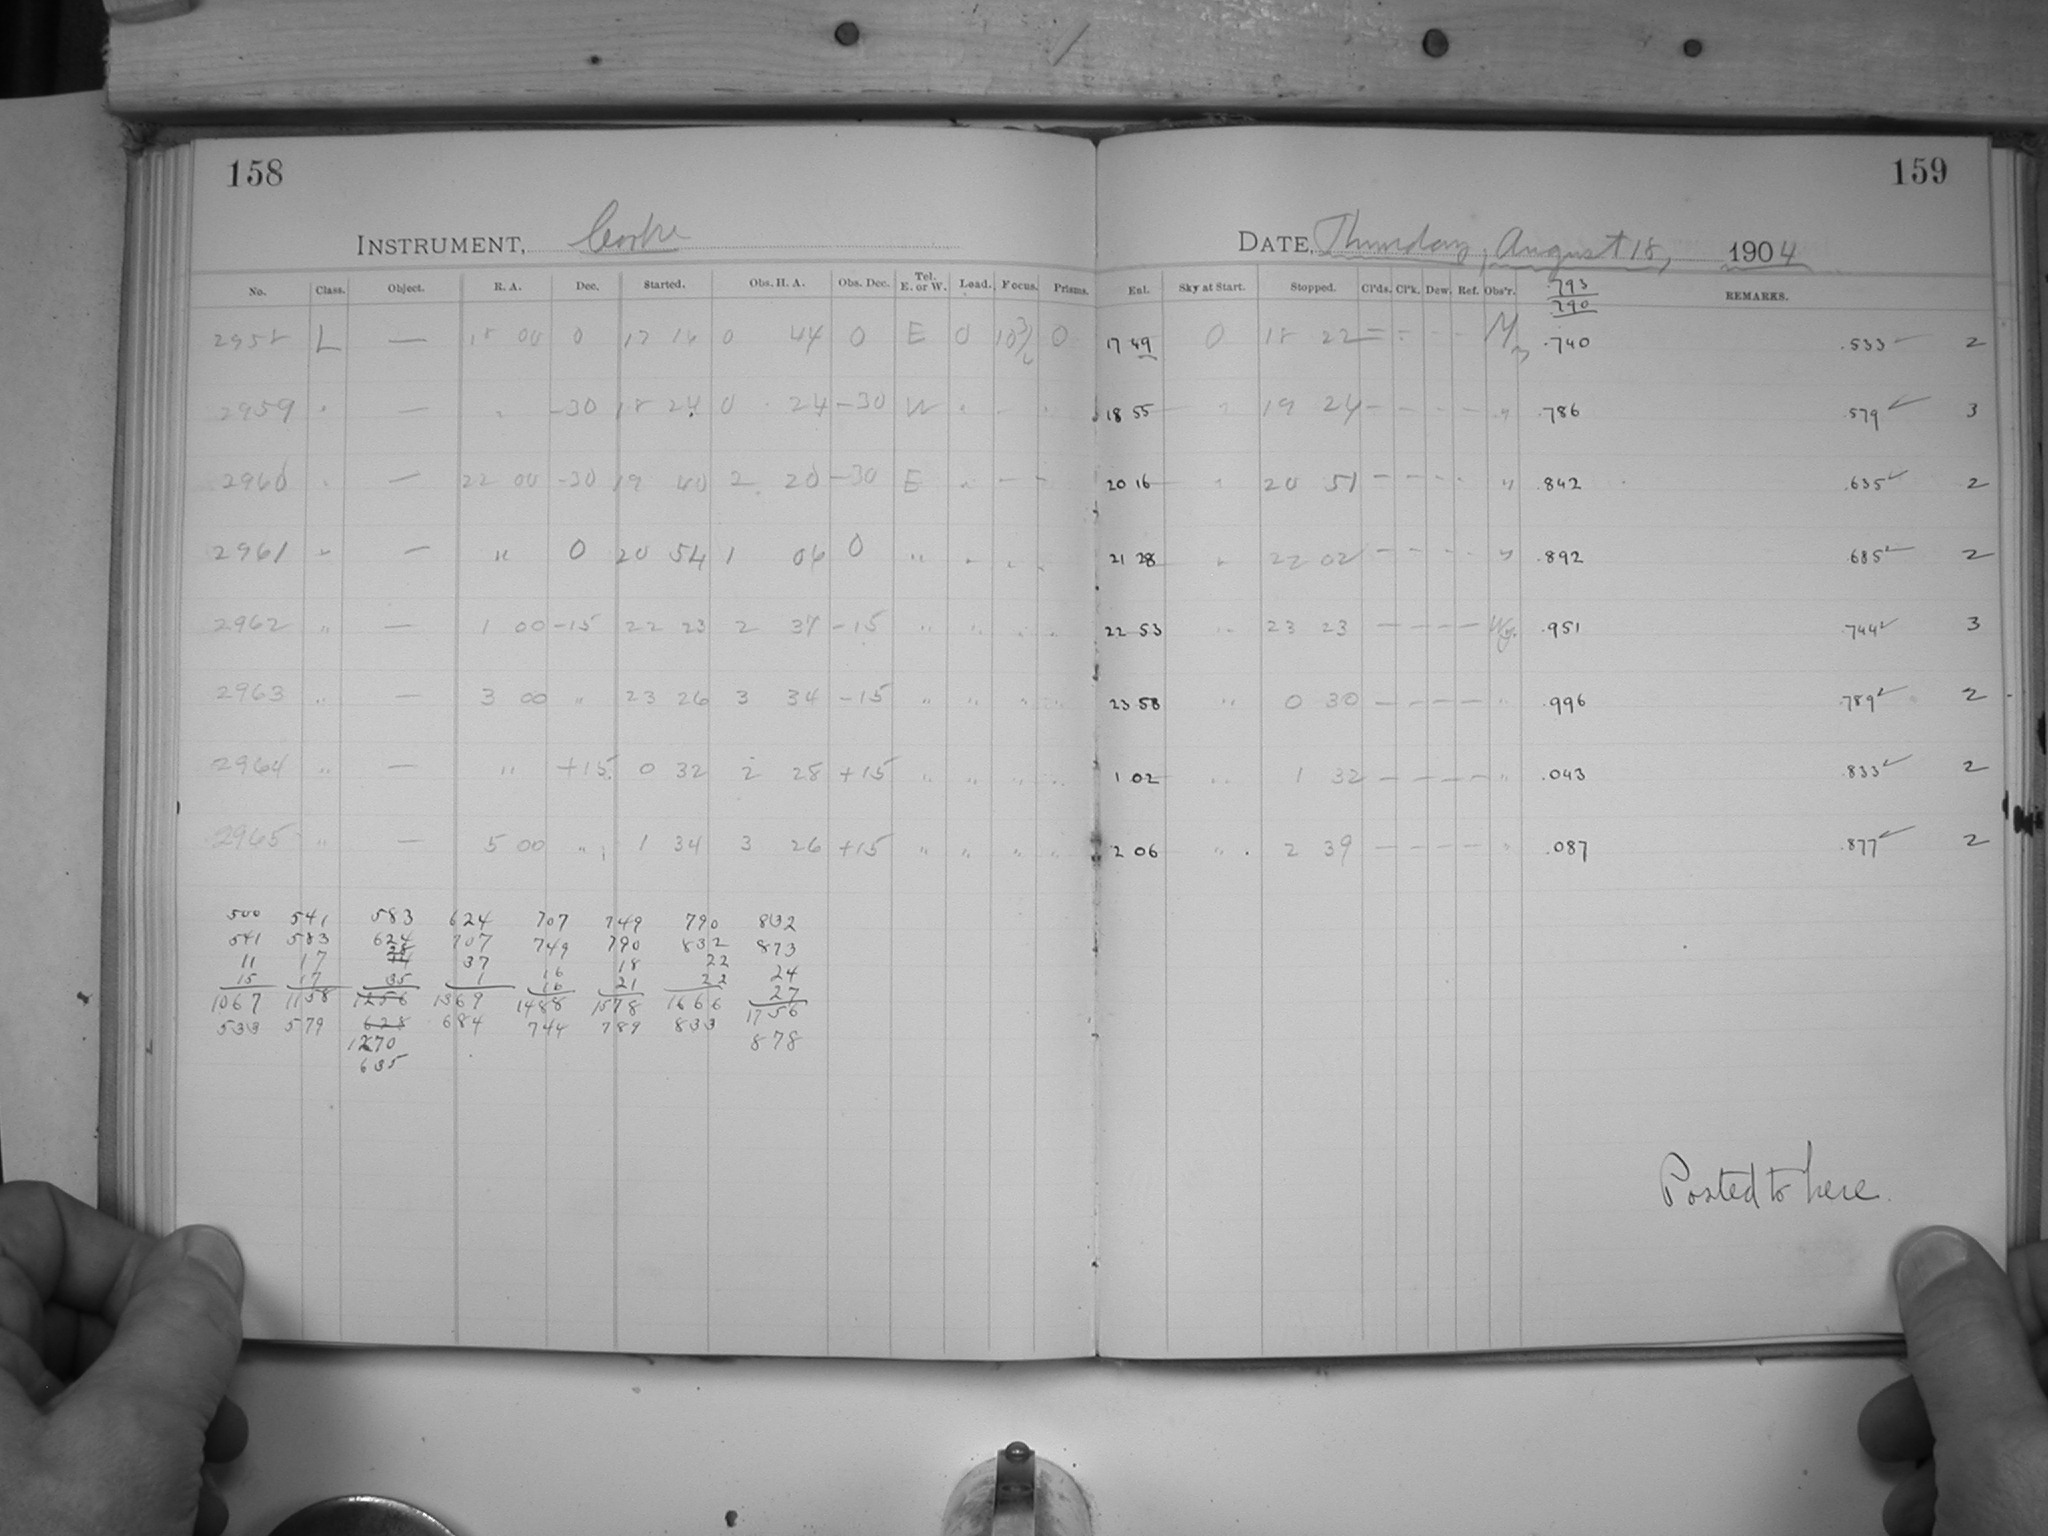 158
159
INSTRUMENT, Cooke
DATE, Thursday, August 18, 1904
No. Class. Object. R. A. Dec. Started. Obs. H. A. Obs. Dec. Tel. E. or W. Load. Focus. Prisms. Enl. Sky at Start. Stopped. Cl'ds. Cl'k. Dew. Ref. Obs'r. .793 REMARKS.
.790
2958 L — 18 00 0 17 16 0 44 0 E 0 0 17 49 0 18 22 — — — — .740 .533 ✓ 2
2959 " — " -30 18 24 0 24 -30 W " - " 18 55 " 19 24 — — — — " .786 .579 ✓ 3
2960 " — 22 00 -30 19 40 2 20 -30 E " - - 20 16 " 20 51 — — — — " .842 .635 ✓ 2
2961 " — " 0 20 54 1 06 0 " " " " 21 28 " 22 02 — — — — " .892 .685 ✓ 2
2962 " — 1 00 -15 22 23 2 37 -15 " " " " 22 53 " 23 23 — — — — .951 .744 ✓ 3
2963 " — 3 00 " 23 26 3 34 -15 " " " " 23 58 " 0 30 — — — — " .996 .789 ✓ 2
2964 " — " +15 0 32 2 28 +15 " " " " 1 02 " 1 32 — — — — " .043 .833 ✓ 2
2965 " — 5 00 " 1 34 3 26 +15 " " " " 2 06 " 2 39 — — — — " .087 .877 ✓ 2
500 541 583 624 707 749 790 832
541 583 624 707 749 790 832 873
11 17 37 16 18 22 24
15 17 35 1 16 21 22 27
1067 1158 1256 1369 1488 1578 1666 1756
533 579 628 684 744 789 833 878
1270
635
Posted to here.